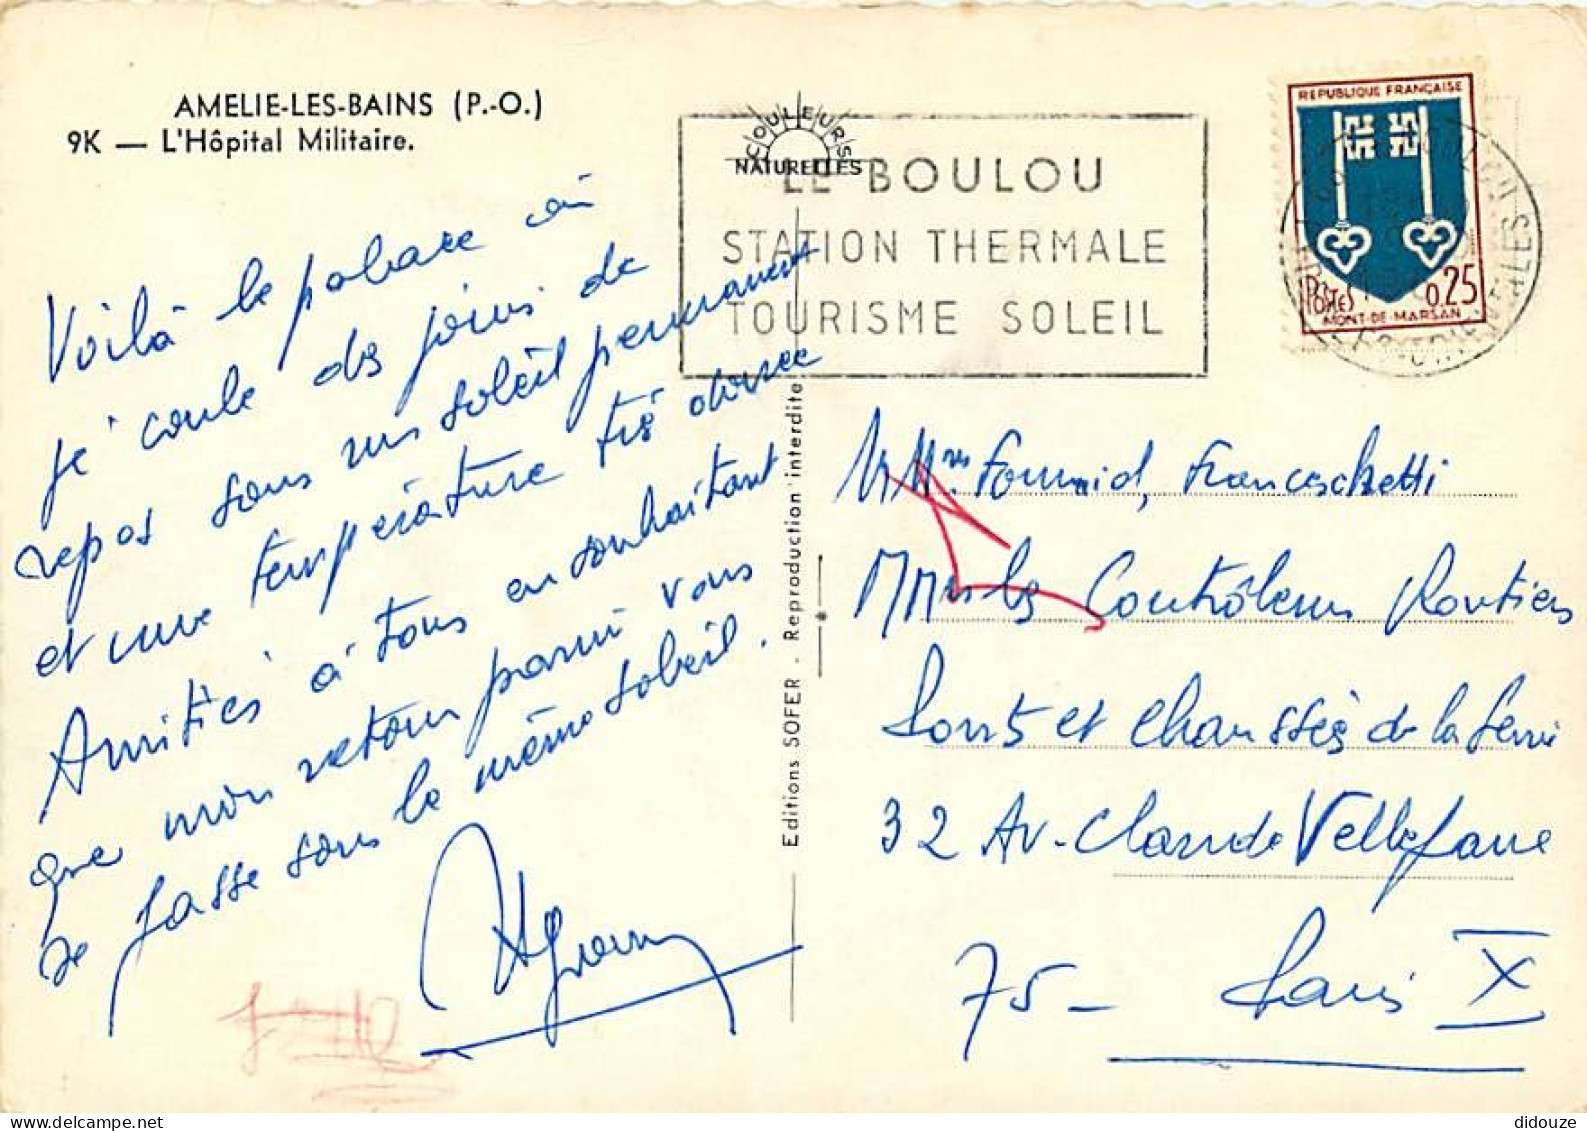 AMELIE-LES-BAINS (P.-O.)
9K — L'Hôpital Militaire.
Voilà le palace où
je coule des jours de
repos sous un soleil permanent
et une température très douce
Amitiés à tous en souhaitant
que mon retour parmi vous
se fasse sous le même soleil.
Editions SOFER - Reproduction interdite
COULEURS
NATURELLES
LE BOULOU
STATION THERMALE
TOURISME SOLEIL
REPUBLIQUE FRANÇAISE
POSTES 0,25
MONT-DE-MARSAN
Franceschetti
les Contrôleurs Routiers
Ponts et Chaussées de la Seine
32 Av. Claude Vellefaux
75 - Paris X
didouze